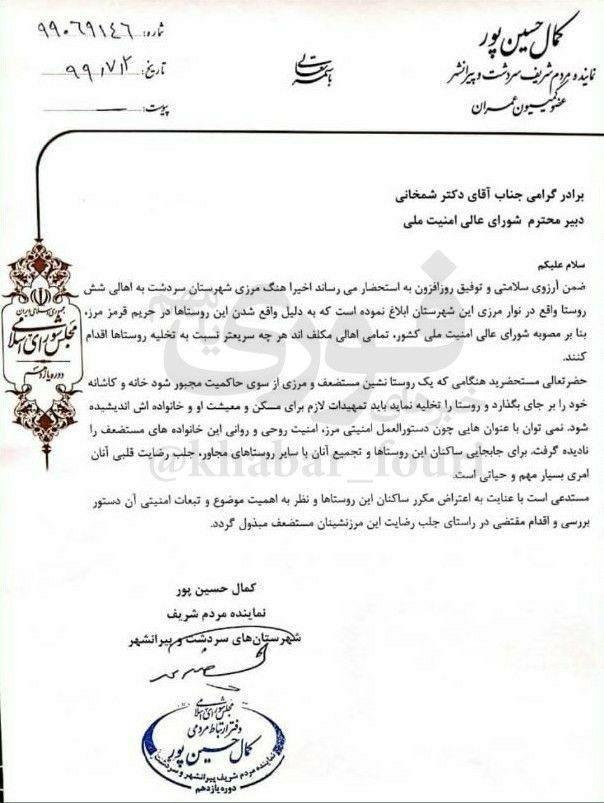 کمال حسین پور
نماینده مردم شریف سردشت و پیرانشهر
عضو کمیسیون عمران
باسمه تعالی
شماره: ۹۹۰۶۹۱۴۶
تاریخ: ۹۹/۷/۲
پیوست:
جمهوری اسلامی ایران
مجلس شورای اسلامی
دوره یازدهم
برادر گرامی جناب آقای دکتر شمخانی
دبیر محترم شورای عالی امنیت ملی
سلام علیکم
ضمن آرزوی سلامتی و توفیق روزافزون به استحضار می رساند اخیرا هنگ مرزی شهرستان سردشت به اهالی شش
روستا واقع در نوار مرزی این شهرستان ابلاغ نموده است که به دلیل واقع شدن این روستاها در حریم قرمز مرز،
بنا بر مصوبه شورای عالی امنیت ملی کشور، تمامی اهالی مکلف اند هر چه سریعتر نسبت به تخلیه روستاها اقدام
کنند.
حضرتعالی مستحضرید هنگامی که یک روستا نشین مستضعف و مرزی از سوی حاکمیت مجبور شود خانه و کاشانه
خود را بر جای بگذارد و روستا را تخلیه نماید باید تمهیدات لازم برای مسکن و معیشت او و خانواده اش اندیشیده
شود. نمی توان با عنوان هایی چون دستورالعمل امنیتی مرز، امنیت روحی و روانی این خانواده های مستضعف را
نادیده گرفت. برای جابجایی ساکنان این روستاها و تجمیع آنان با سایر روستاهای مجاور، جلب رضایت قلبی آنان
امری بسیار مهم و حیاتی است.
مستدعی است با عنایت به اعتراض مکرر ساکنان این روستاها و نظر به اهمیت موضوع و تبعات امنیتی آن دستور
بررسی و اقدام مقتضی در راستای جلب رضایت این مرزنشینان مستضعف مبذول گردد.
فوری
@khabar_fouri
کمال حسین پور
نماینده مردم شریف
شهرستان‌های سردشت و پیرانشهر
مجلس شورای اسلامی
دفتر ارتباط مردمی
کمال حسین پور
نماینده مردم شریف پیرانشهر و سردشت
دوره یازدهم